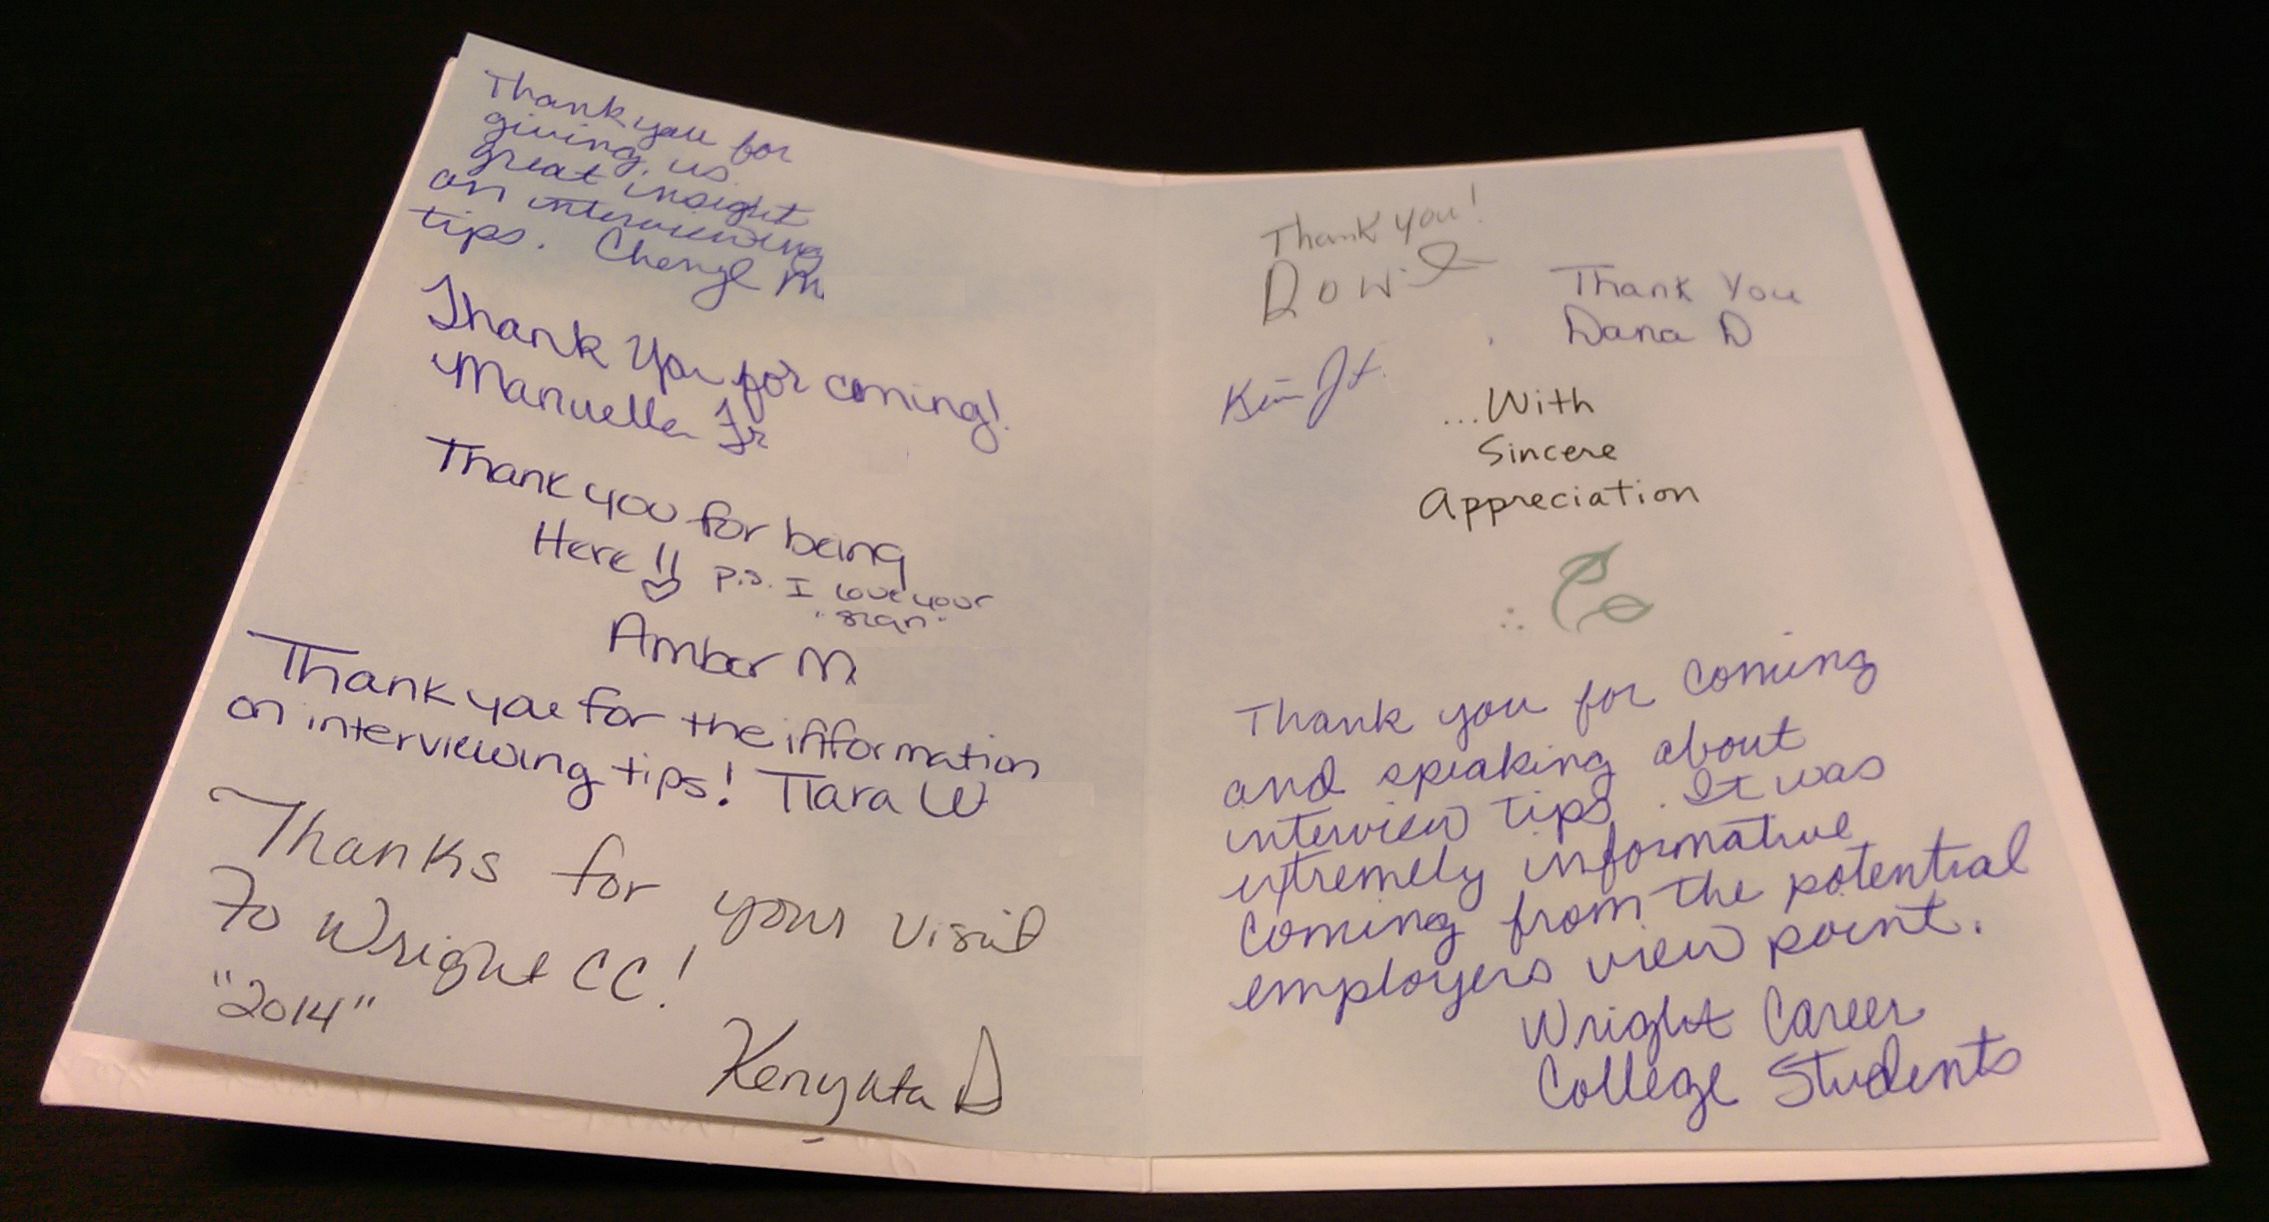 Thank you for
giving us
great insight
on interviewing
tips. Cheryl M
Thank You for coming!
Manuella Jr
Thank you for being
Here!!
p.s. I love your
"sign"
Amber M
Thank you for the information
on interviewing tips! Tiara W
Thanks for your visit
To Wright CC!
"2014"
Kenyata D
Thank you!
Thank You
Dana D
Kim
...With
Sincere
Appreciation
Thank you for coming
and speaking about
interview tips. It was
extremely informative
coming from the potential
employers view point.
Wright Career
College Students